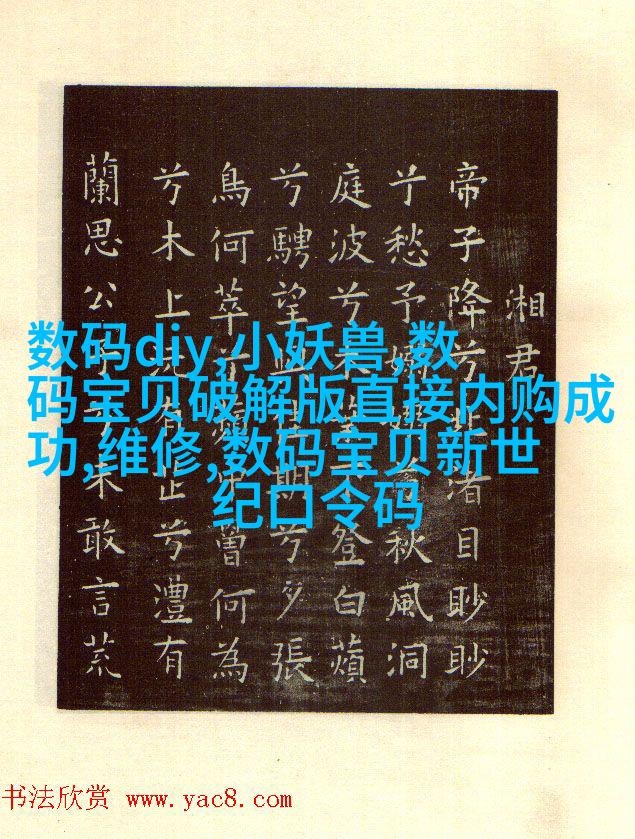 数码diy,小妖兽,数
码宝贝破解版直接内购成
功,维修,数码宝贝新世
纪口令码
湘君
帝子降兮北渚目眇眇
兮愁予嫋嫋兮秋風洞
庭波兮木葉下登白蘋
兮騁望與佳期兮夕張
鳥何萃兮蘋中曾何為
兮木上沅有芷兮澧有
蘭思公子兮未敢言荒
书法欣赏 www.yac8.com